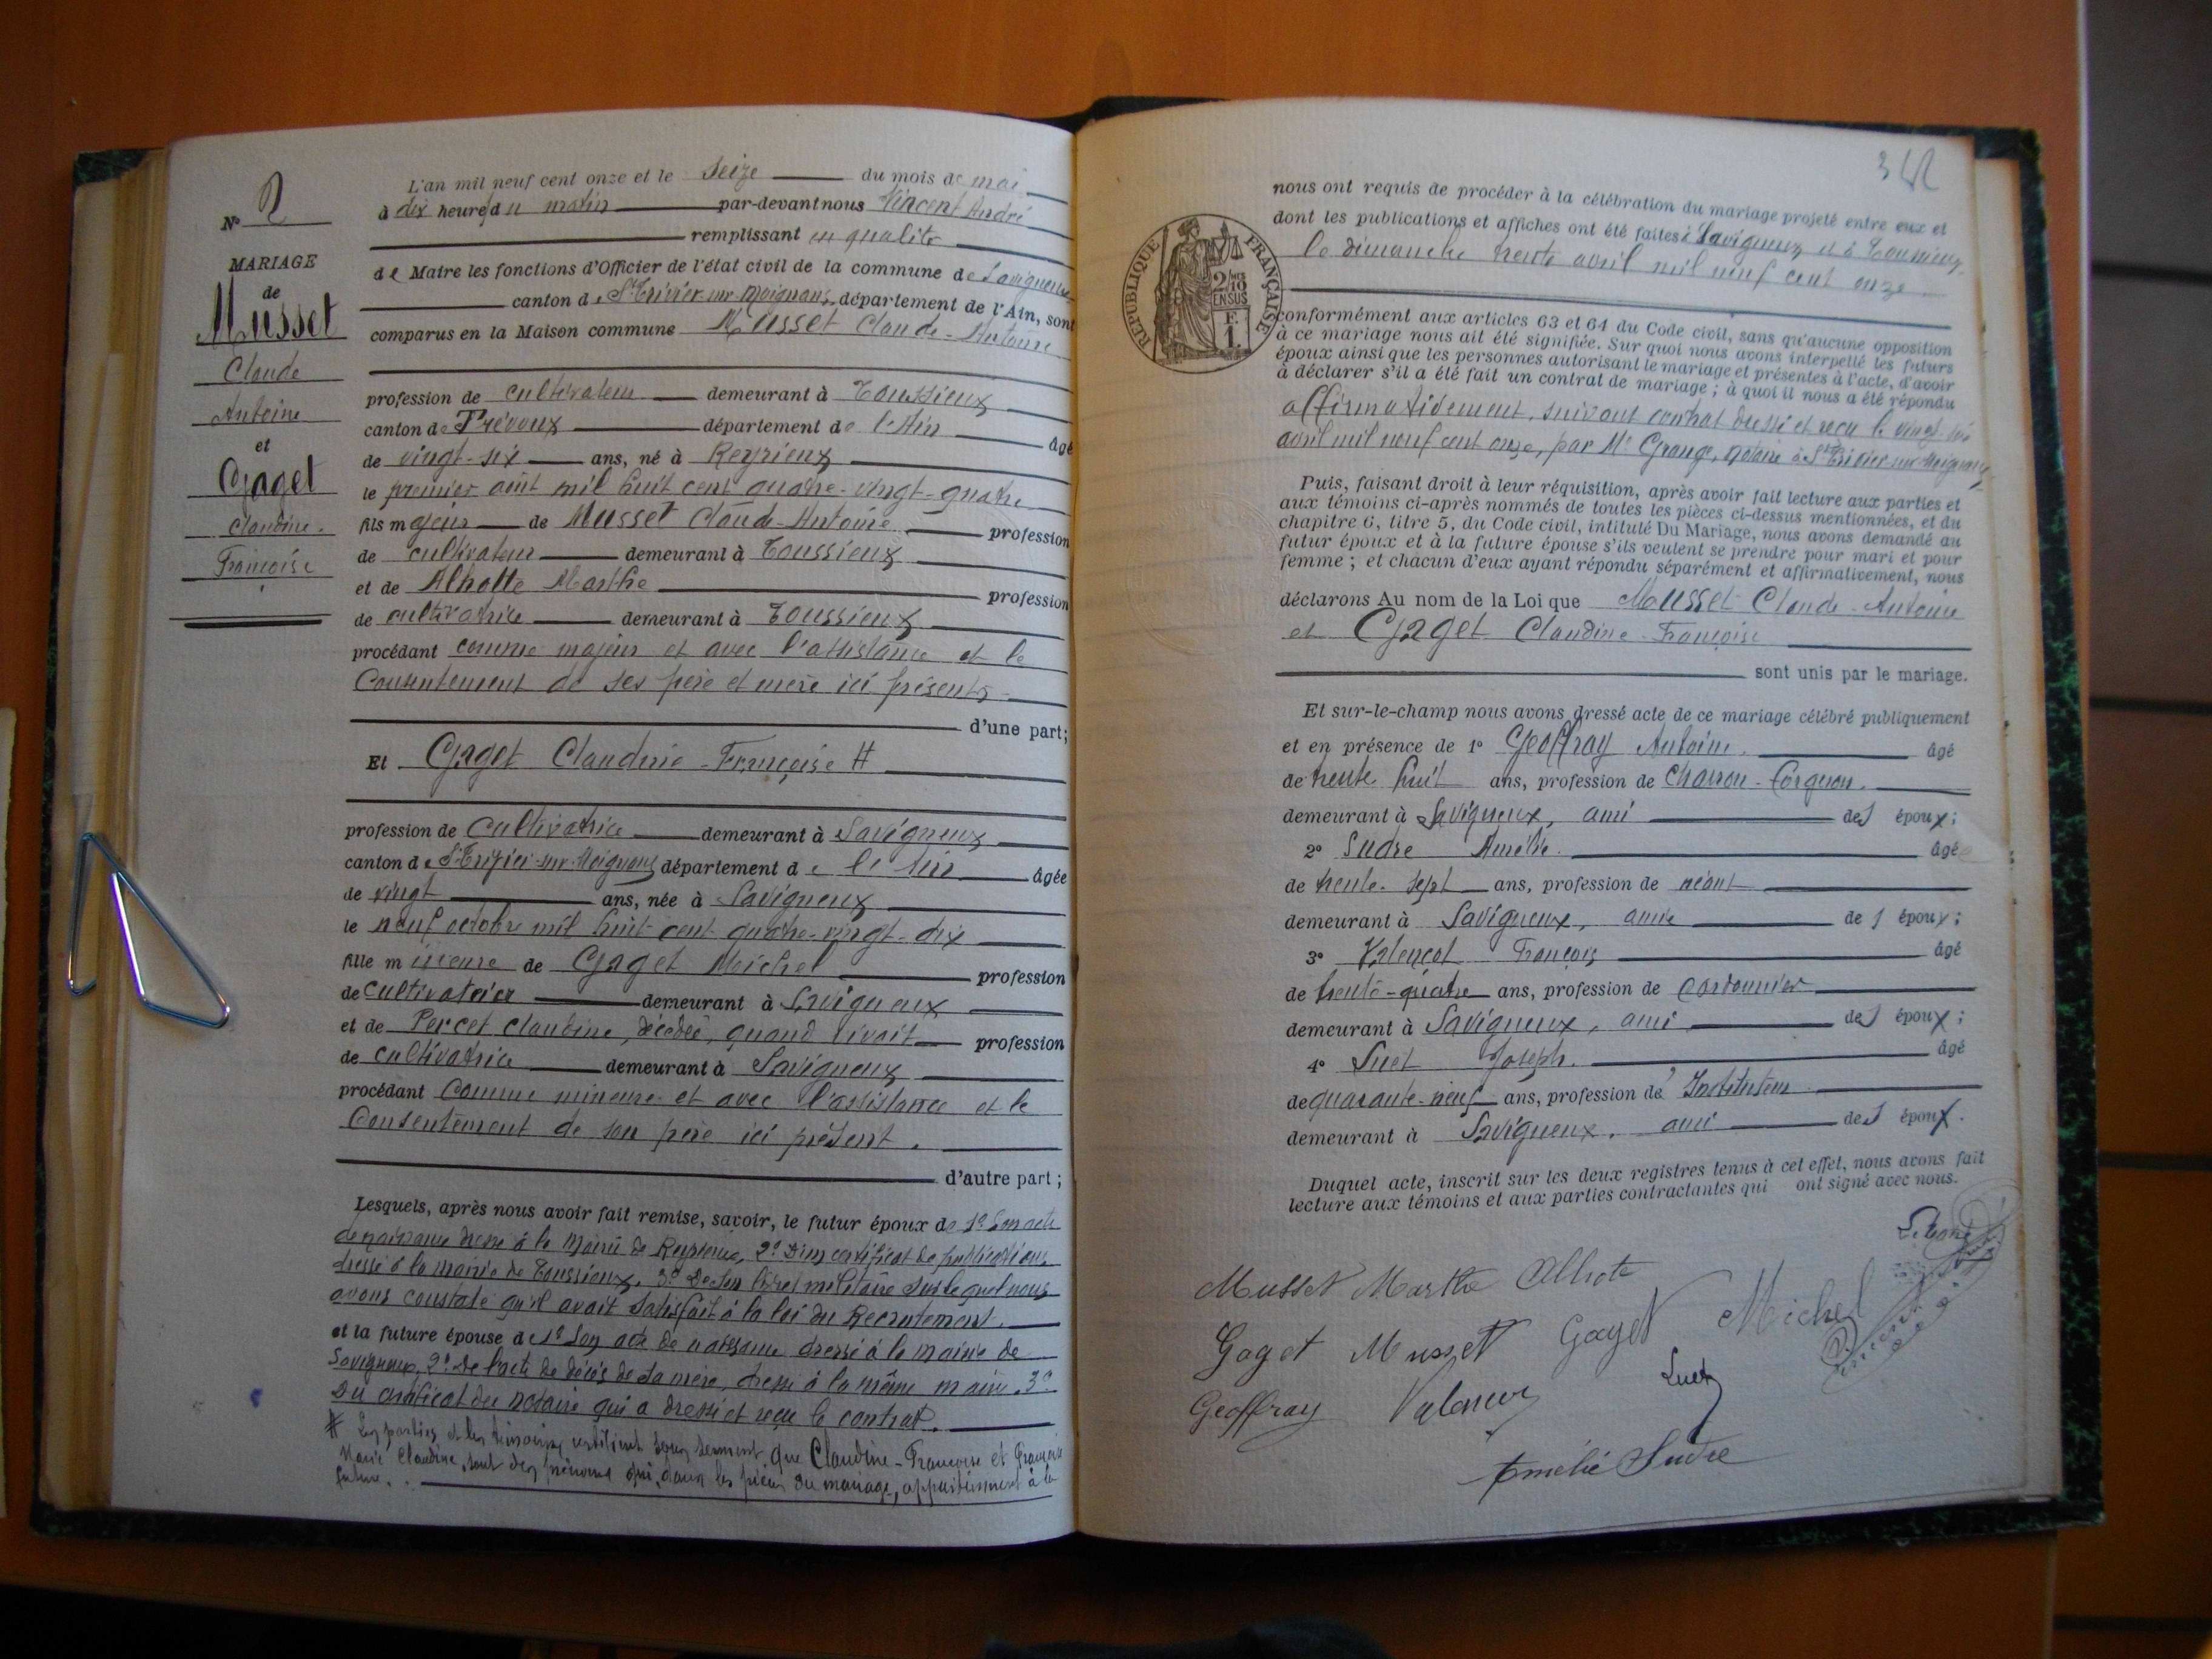 N° 2
MARIAGE
de
Musset
Claude
Antoine
et
Gaget
Claudine-
Françoise
L'an mil neuf cent onze et le seize du mois de mai
à dix heures du matin par-devant nous Vincent André
remplissant en qualité
de Maire les fonctions d'Officier de l'état civil de la commune de Savigneux
canton de St Trivier-sur-Moignans, département de l'Ain, sont
comparus en la Maison commune Musset Claude-Antoine
profession de cultivateur demeurant à Toussieux
canton de Trévoux département de l'Ain âgé
de vingt-six ans, né à Reyrieux
le premier août mil huit cent quatre-vingt-quatre
fils majeur de Musset Claude-Antoine profession
de cultivateur demeurant à Toussieux
et de Alhotte Marthe profession
de cultivatrice demeurant à Toussieux
procédant comme majeur et avec l'assistance et le
Consentement de ses père et mère ici présents
d'une part;
Et Gaget Claudine-Françoise #
profession de Cultivatrice demeurant à Savigneux
canton de St Trivier-sur-Moignans département de l'Ain âgée
de vingt ans, née à Savigneux
le neuf octobre mil huit cent quatre-vingt-dix
fille mineure de Gaget Michel profession
de Cultivateur demeurant à Savigneux
et de Percet Claudine, décédée, quand vivait profession
de cultivatrice demeurant à Savigneux
procédant Comme mineure et avec l'assistance et le
Consentement de son père ici présent.
d'autre part;
Lesquels, après nous avoir fait remise, savoir, le futur époux de 1° Son acte
de naissance dressé à la Mairie de Reyrieux, 2° D'un certificat de publications
dressé à la mairie de Toussieux, 3° De son livret militaire sur lequel nous
avons constaté qu'il avait satisfait à la loi du Recrutement.
et la future épouse de 1° Son acte de naissance dressé à la mairie de
Savigneux, 2° De l'acte de décès de sa mère, dressé à la même mairie. 3°
Du certificat du notaire qui a dressé et reçu le contrat.
# Les parties et les témoins certifient sous serment que Claudine-Françoise et Françoise
Marie Claudine, sont des prénoms qui, dans les pièces du mariage, appartiennent à la
future.
342
RÉPUBLIQUE FRANÇAISE
2/10 EN SUS
F.
1.
nous ont requis de procéder à la célébration du mariage projeté entre eux et
dont les publications et affiches ont été faites à Savigneux et à Toussieux
le dimanche trente avril mil neuf cent onze
conformément aux articles 63 et 64 du Code civil, sans qu'aucune opposition
à ce mariage nous ait été signifiée. Sur quoi nous avons interpellé les futurs
époux ainsi que les personnes autorisant le mariage et présentes à l'acte, d'avoir
à déclarer s'il a été fait un contrat de mariage; à quoi il nous a été répondu
affirmativement, suivant contrat dressé et reçu le vingt-six
avril mil neuf cent onze, par Me Grange, notaire à St Trivier-sur-Moignans
Puis, faisant droit à leur réquisition, après avoir fait lecture aux parties et
aux témoins ci-après nommés de toutes les pièces ci-dessus mentionnées, et du
chapitre 6, titre 5, du Code civil, intitulé Du Mariage, nous avons demandé au
futur époux et à la future épouse s'ils veulent se prendre pour mari et pour
femme; et chacun d'eux ayant répondu séparément et affirmativement, nous
déclarons Au nom de la Loi que Musset Claude-Antoine
et Gaget Claudine-Françoise
sont unis par le mariage.
Et sur-le-champ nous avons dressé acte de ce mariage célébré publiquement
et en présence de 1° Geoffray Antoine. âgé
de trente huit ans, profession de Charron-Forgeron.
demeurant à Savigneux, ami des époux;
2° Sudre Amélie. âgée
de trente-sept ans, profession de néant
demeurant à Savigneux, amie des époux;
3° Valençot François âgé
de trente-quatre ans, profession de Cordonnier
demeurant à Savigneux, ami des époux;
4° Suet Joseph. âgé
de quarante-neuf ans, profession de Instituteur
demeurant à Savigneux, ami des époux.
Duquel acte, inscrit sur les deux registres tenus à cet effet, nous avons fait
lecture aux témoins et aux parties contractantes qui ont signé avec nous.
Musset Marthe Alhote
Gaget Musset Gaget Michel
Geoffray Suet
Amélie Sudre